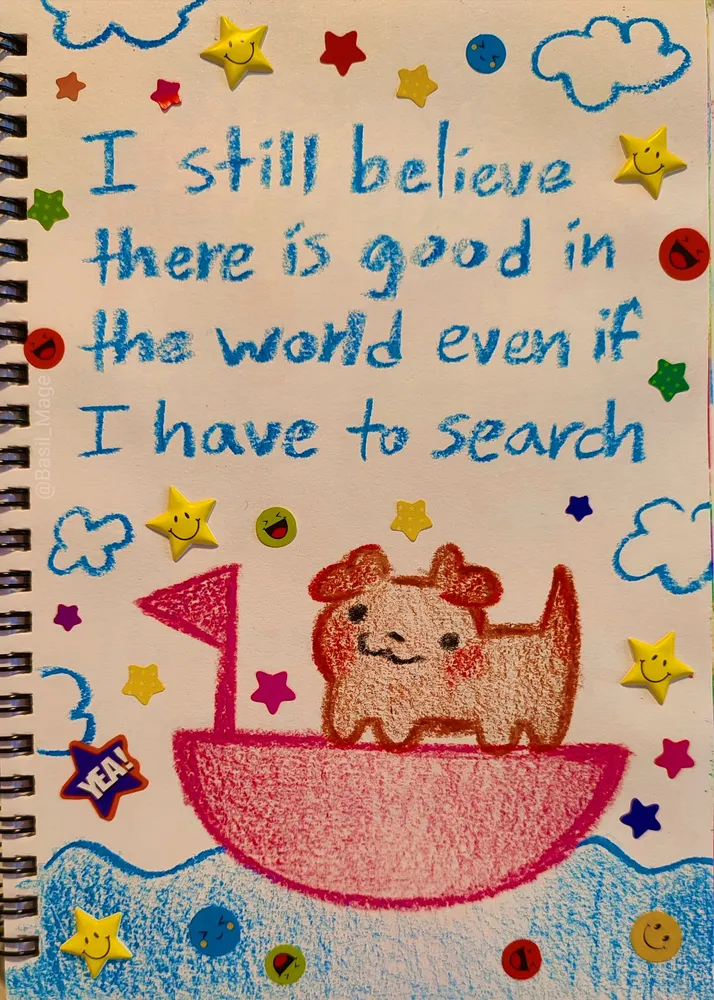 I still believe
there is good in
the world even if
I have to search
YEA!
@Basil_Mage